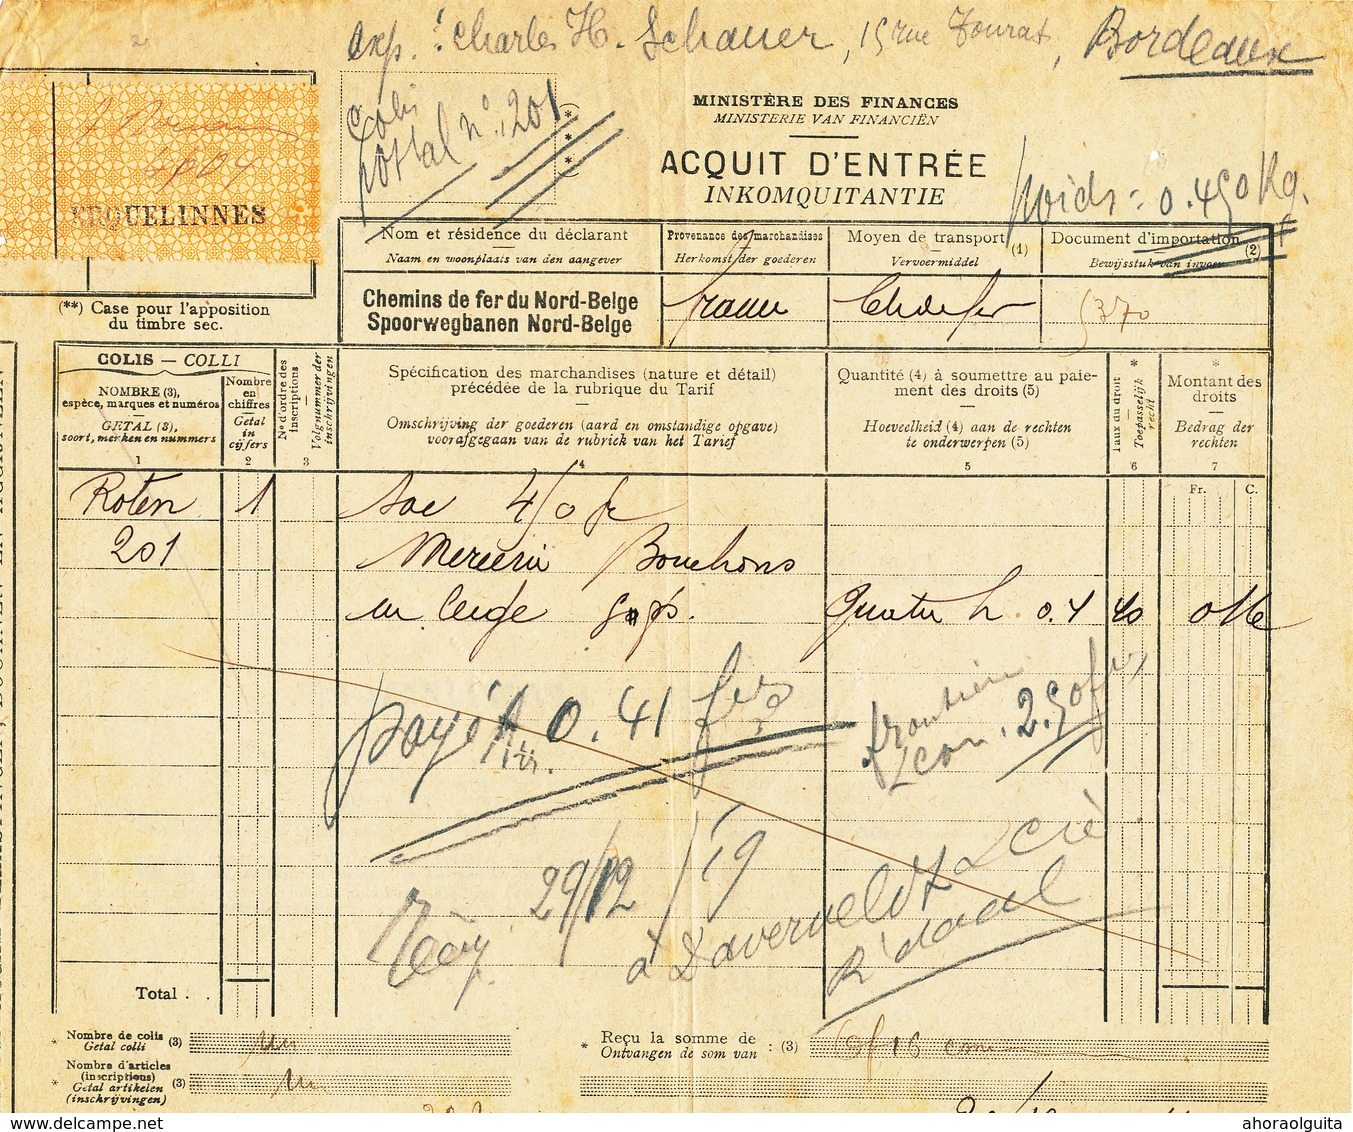 exp. : Charles H. Schauer, 15 rue Tourat, Bordeaux
Colis
postal n° 201
ERQUELINNES
MINISTÈRE DES FINANCES
MINISTERIE VAN FINANCIËN
ACQUIT D'ENTRÉE
INKOMQUITANTIE
poids = 0.450 Kg.
(**) Case pour l'apposition
du timbre sec.
Nom et résidence du déclarant
Naam en woonplaats van den aangever
Provenance des marchandises
Herkomst der goederen
Moyen de transport (1)
Vervoermiddel
Document d'importation (2)
Bewijsstuk van invoer
Chemins de fer du Nord-Belge
Spoorwegbanen Nord-Belge
france
Ch de fer
5370
COLIS — COLLI
NOMBRE (3),
espèce, marques et numéros
GETAL (3),
soort, merken en nummers
1
Nombre
en
chiffres
Getal
in
cijfers
2
N° d'ordre des
inscriptions
Volgnummer der
inschrijvingen
3
Spécification des marchandises (nature et détail)
précédée de la rubrique du Tarif
Omschrijving der goederen (aard en omstandige opgave)
voorafgegaan van de rubriek van het Tarief
4
Quantité (4) à soumettre au paie-
ment des droits (5)
Hoeveelheid (4) aan de rechten
te onderwerpen (5)
5
Taux du droit
Toepasselijk
recht
6
Montant des
droits
Bedrag der
rechten
7
Fr. C.
Roten 1 sac 4/0 fr
201 Mercerie Bouchons
en liège
payé 0.41 frs
frontière
2.50 frs
29/12/19
à
Total . .
* Nombre de colis (3)
Getal colli
un
* Reçu la somme de : (3)
Ontvangen de som van
* Nombre d'articles
(inscriptions) (3)
Getal artikelen
(inschrijvingen)
un
delcampe.net
ahoraolguita